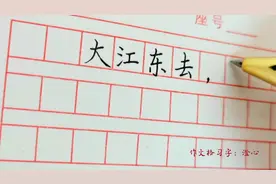 座号
大江东去，
作文格习字：澄心